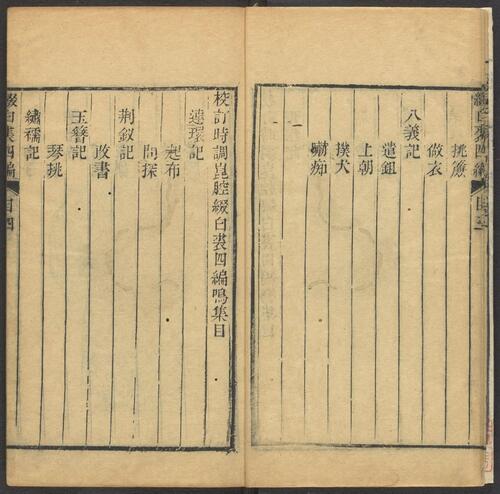 挑簾
做衣
八義記
遣鉏
上朝
撲犬
嚇痴
校訂時調崑腔綴白裘四編鳴集目
連環記
起布
問探
荆釵記
改書
玉簪記
琴挑
繡襦記
綴白裘四編
目四